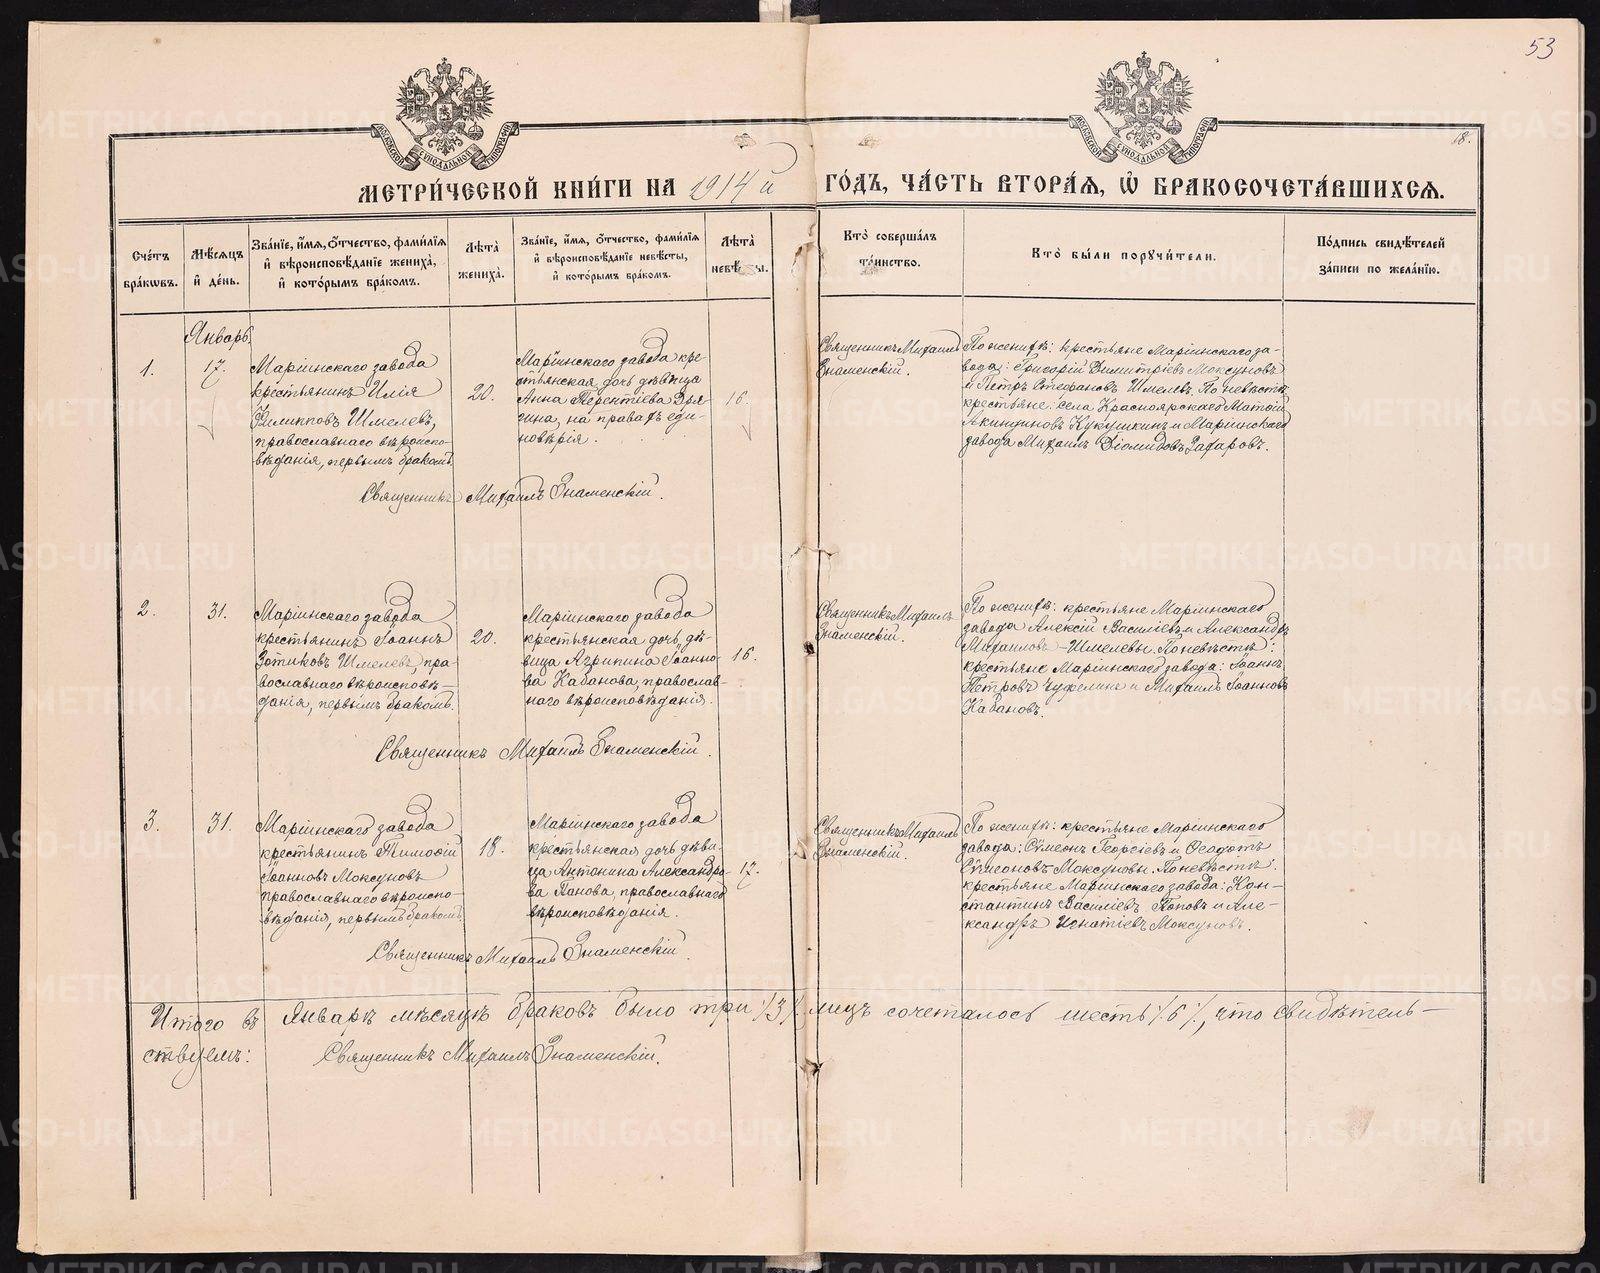 53
18.
МОСКОВСКОЙ СѴНОДАЛЬНОЙ ТИПОГРАФІИ
МОСКОВСКОЙ СѴНОДАЛЬНОЙ ТИПОГРАФІИ
МЕТРИ́ЧЕСКОЙ КНИ́ГИ НА 1914 й ГО́ДЪ, ЧА́СТЬ ВТОРА́Я, Ѡ БРАКОСОЧЕТА́ВШИХСЯ.
Сче́тъ бра́кѡвъ.
Мѣ́сяцъ и҆ де́нь.
Зва́нїе, и҆́мя, ѻ҆́тчество, фами́лїя и҆ вѣроисповѣ́данїе жениха̀, и҆ кото́рымъ бра́комъ.
Лѣ́та жениха̀.
Зва́нїе, и҆́мя, ѻ҆́тчество, фами́лїя и҆ вѣроисповѣ́данїе невѣ́сты, и҆ кото́рымъ бра́комъ.
Лѣ́та невѣ́сты.
Кто̀ соверша́лъ та́инство.
Кто̀ бы́ли поручи́тели.
По́дпись свидѣ́телей за́писи по жела́нїю.
Январь
1.
17.
Маріинскаго завода
крестьянинъ Илія
Филипповъ Шмелевъ,
православнаго вѣроиспо-
вѣданія, первымъ бракомъ.
20.
Маріинскаго завода кре-
стьянская дочь дѣвица
Анна Терентіева
на правахъ еди-
новѣрія.
16.
Священникъ Михаилъ
Знаменскій.
По женихѣ: крестьяне Маріинскаго за-
вода: Григорій Димитріевъ Моксуновъ
и Петръ Стефановъ Шмелевъ. По невѣстѣ:
крестьяне: села Красноярскаго
Акиндиновъ Кукушкинъ и Маріинскаго
завода Михаилъ Діомидовъ Захаровъ.
Священникъ Михаилъ Знаменскій.
2.
31.
Маріинскаго завода
крестьянинъ Іоаннъ
Зотиковъ Шмелевъ, пра-
вославнаго вѣроисповѣ-
данія, первымъ бракомъ.
20.
Маріинскаго завода
крестьянская дочь дѣ-
вица Агрипина Іоанно-
ва Кабанова, православ-
наго вѣроисповѣданія.
16.
Священникъ Михаилъ
Знаменскій.
По женихѣ: крестьяне Маріинскаго
завода Алексій Василіевъ и Александръ
Михаиловъ Шмелевы. По невѣстѣ:
крестьяне Маріинскаго завода: Іоаннъ
Петровъ Чуфелинъ и Михаилъ Іоанновъ
Кабановъ.
Священникъ Михаилъ Знаменскій.
3.
31.
Маріинскаго завода
крестьянинъ Тимоѳій
Іоанновъ Моксуновъ
православнаго вѣроиспо-
вѣданія, первымъ бракомъ.
18.
Маріинскаго завода
крестьянская дочь дѣви-
ца Антонина Александро-
ва Панова, православнаго
вѣроисповѣданія.
17.
Священникъ Михаилъ
Знаменскій.
По женихѣ: крестьяне Маріинскаго
завода: Сѵмеонъ Георгіевъ и Ѳеодотъ
Сѵмеоновъ Моксуновы. По невѣстѣ:
крестьяне Маріинскаго завода: Кон-
стантинъ Василіевъ Поповъ и Але-
ксандръ Игнатіевъ Моксуновъ.
Священникъ Михаилъ Знаменскій.
Итого въ Январѣ мѣсяцѣ браковъ было три /3/, лицъ сочеталось шесть /6/, что свидѣтель-
ствуемъ: Священникъ Михаилъ Знаменскій.
METRIKI.GASO-URAL.RU